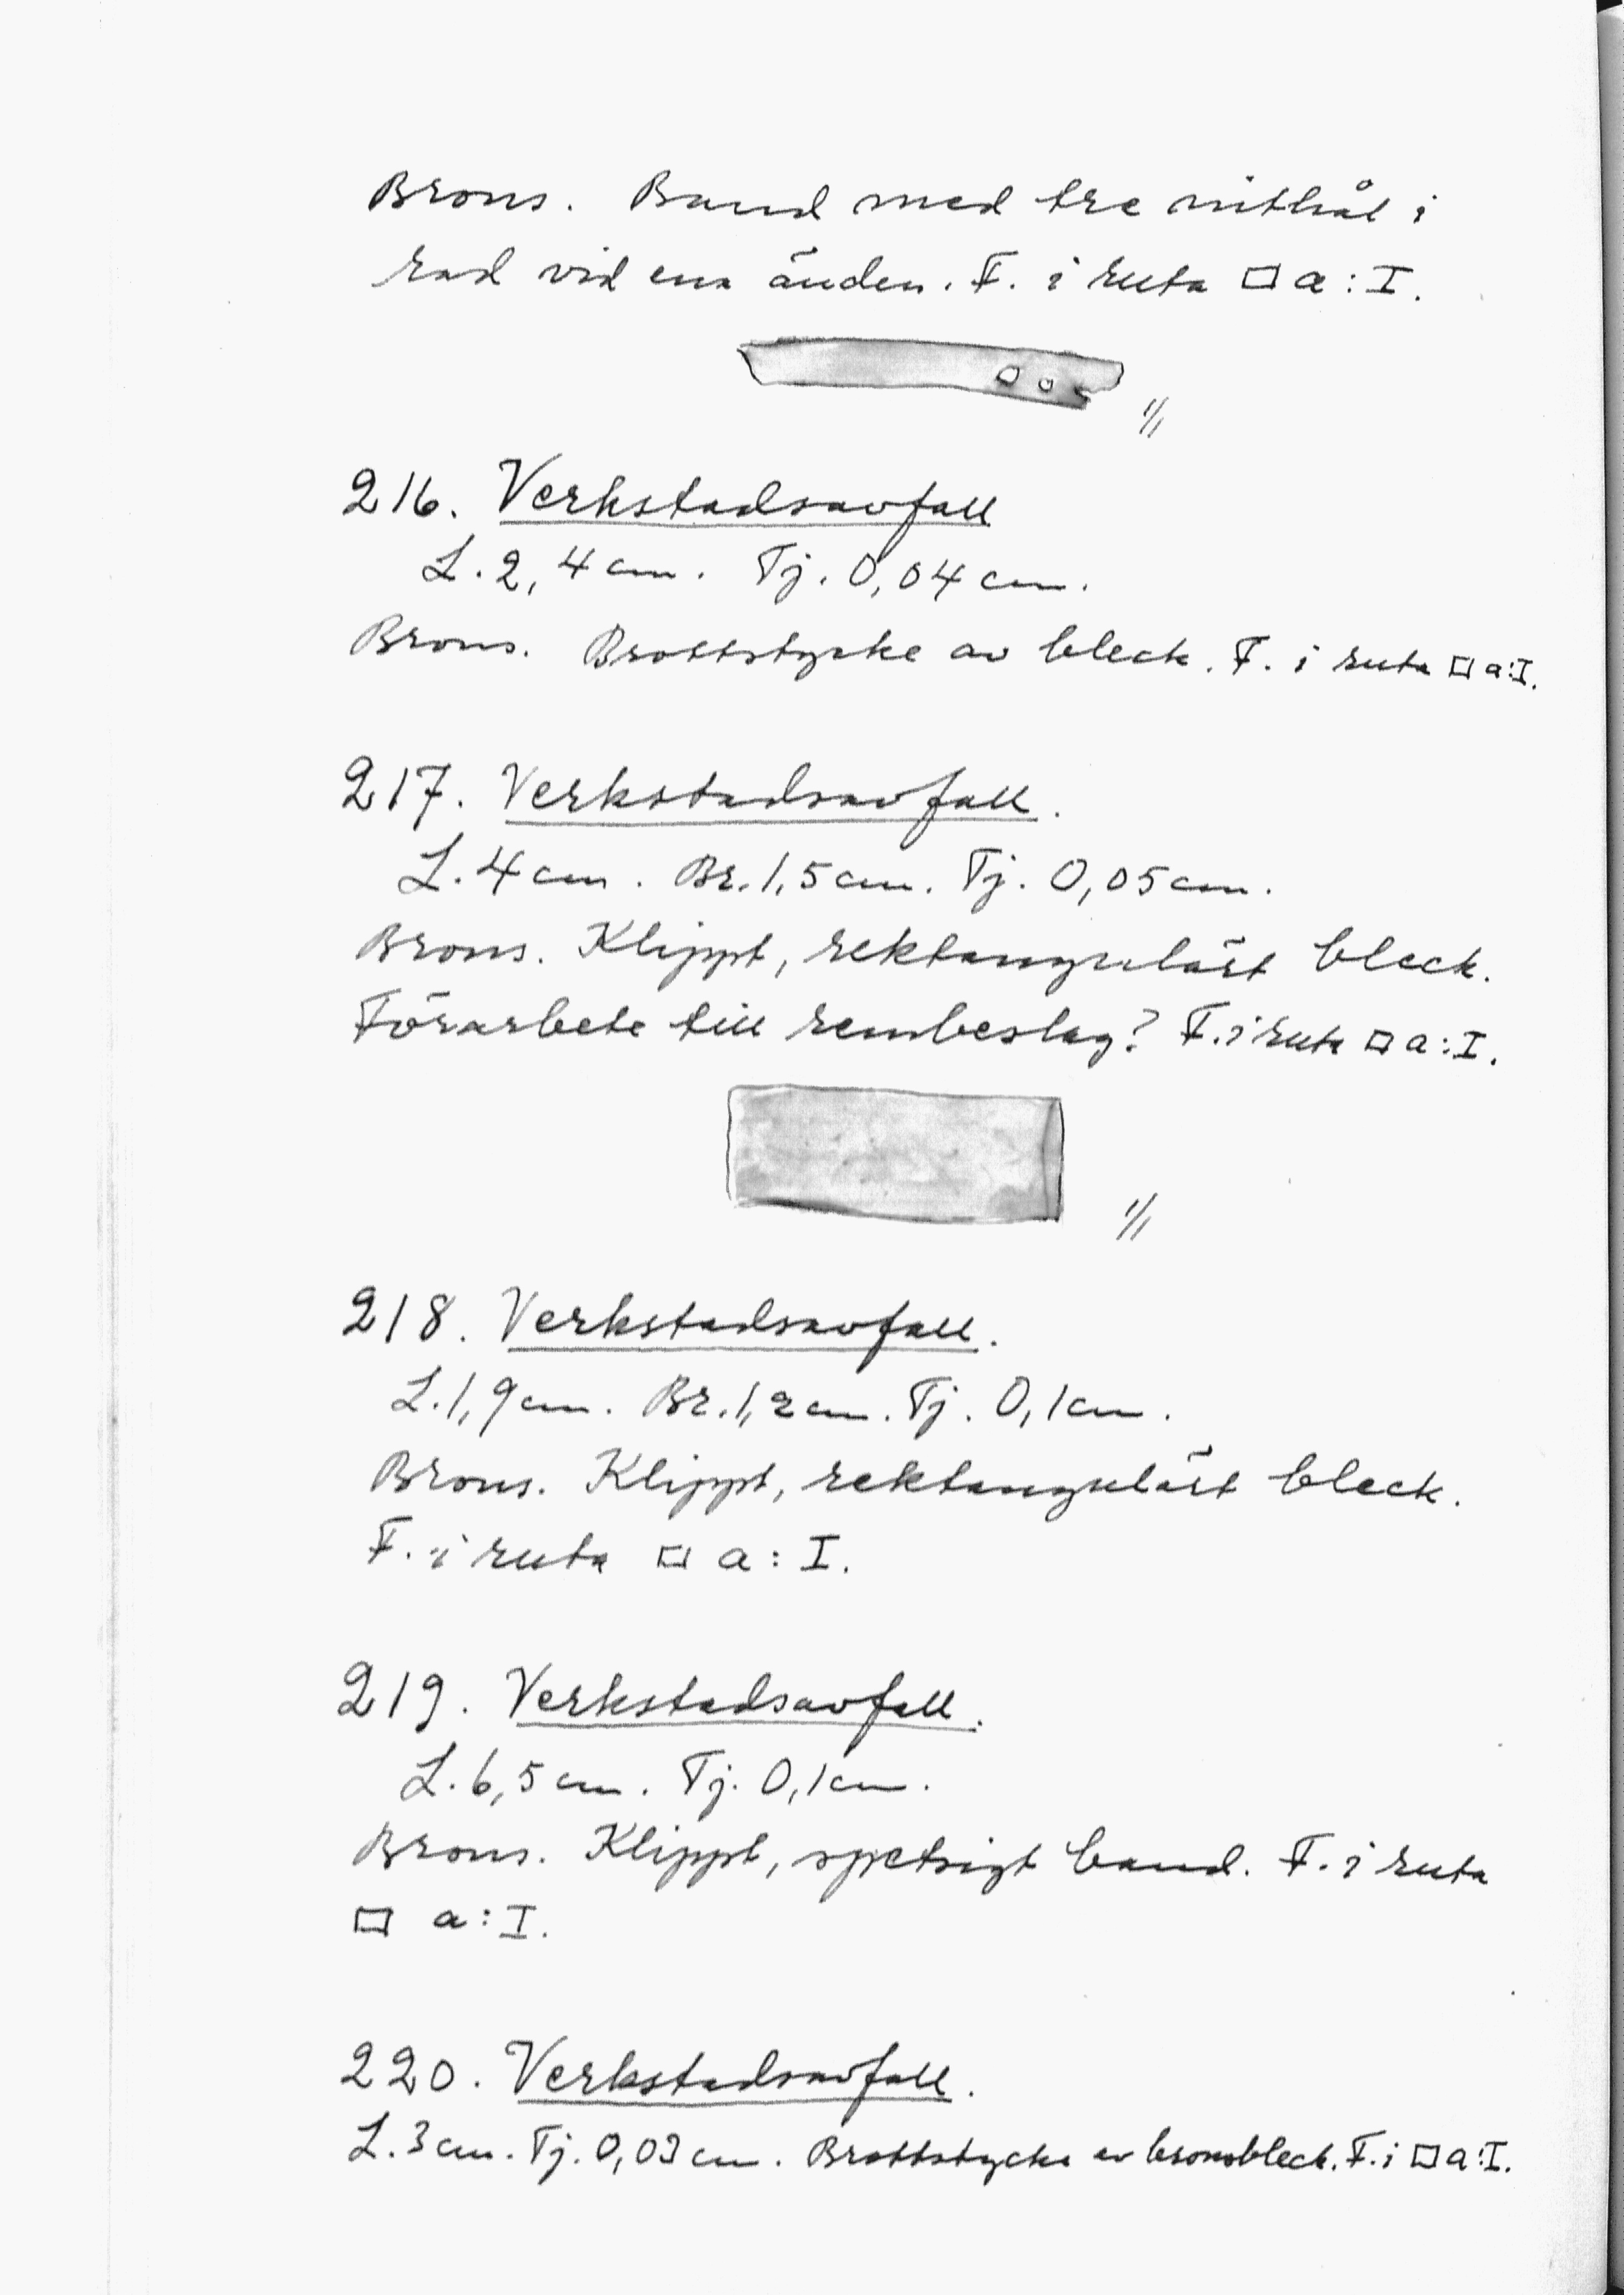 Brons. Band med tre nithål i
rad vid ena änden. F. i ruta □ a:I.
1/1
216. Verkstadsavfall
L. 2,4 cm. Tj. 0,04 cm.
Brons. Brottstycke av bleck. F. i ruta □ a:I.
217. Verkstadsavfall.
L. 4 cm. Br. 1,5 cm. Tj. 0,05 cm.
Brons. Klippt, rektangulärt bleck.
Förarbete till rembeslag? F. i ruta □ a:I.
1/1
218. Verkstadsavfall.
L. 1,9 cm. Br. 1,2 cm. Tj. 0,1 cm.
Brons. Klippt, rektangulärt bleck.
F. i ruta □ a:I.
219. Verkstadsavfall.
L. 6,5 cm. Tj. 0,1 cm.
Brons. Klippt, spetsigt band. F. i ruta
□ a:I.
220. Verkstadsavfall.
L. 3 cm. Tj. 0,03 cm. Brottstycke av bronsbleck. F. i □ a:I.